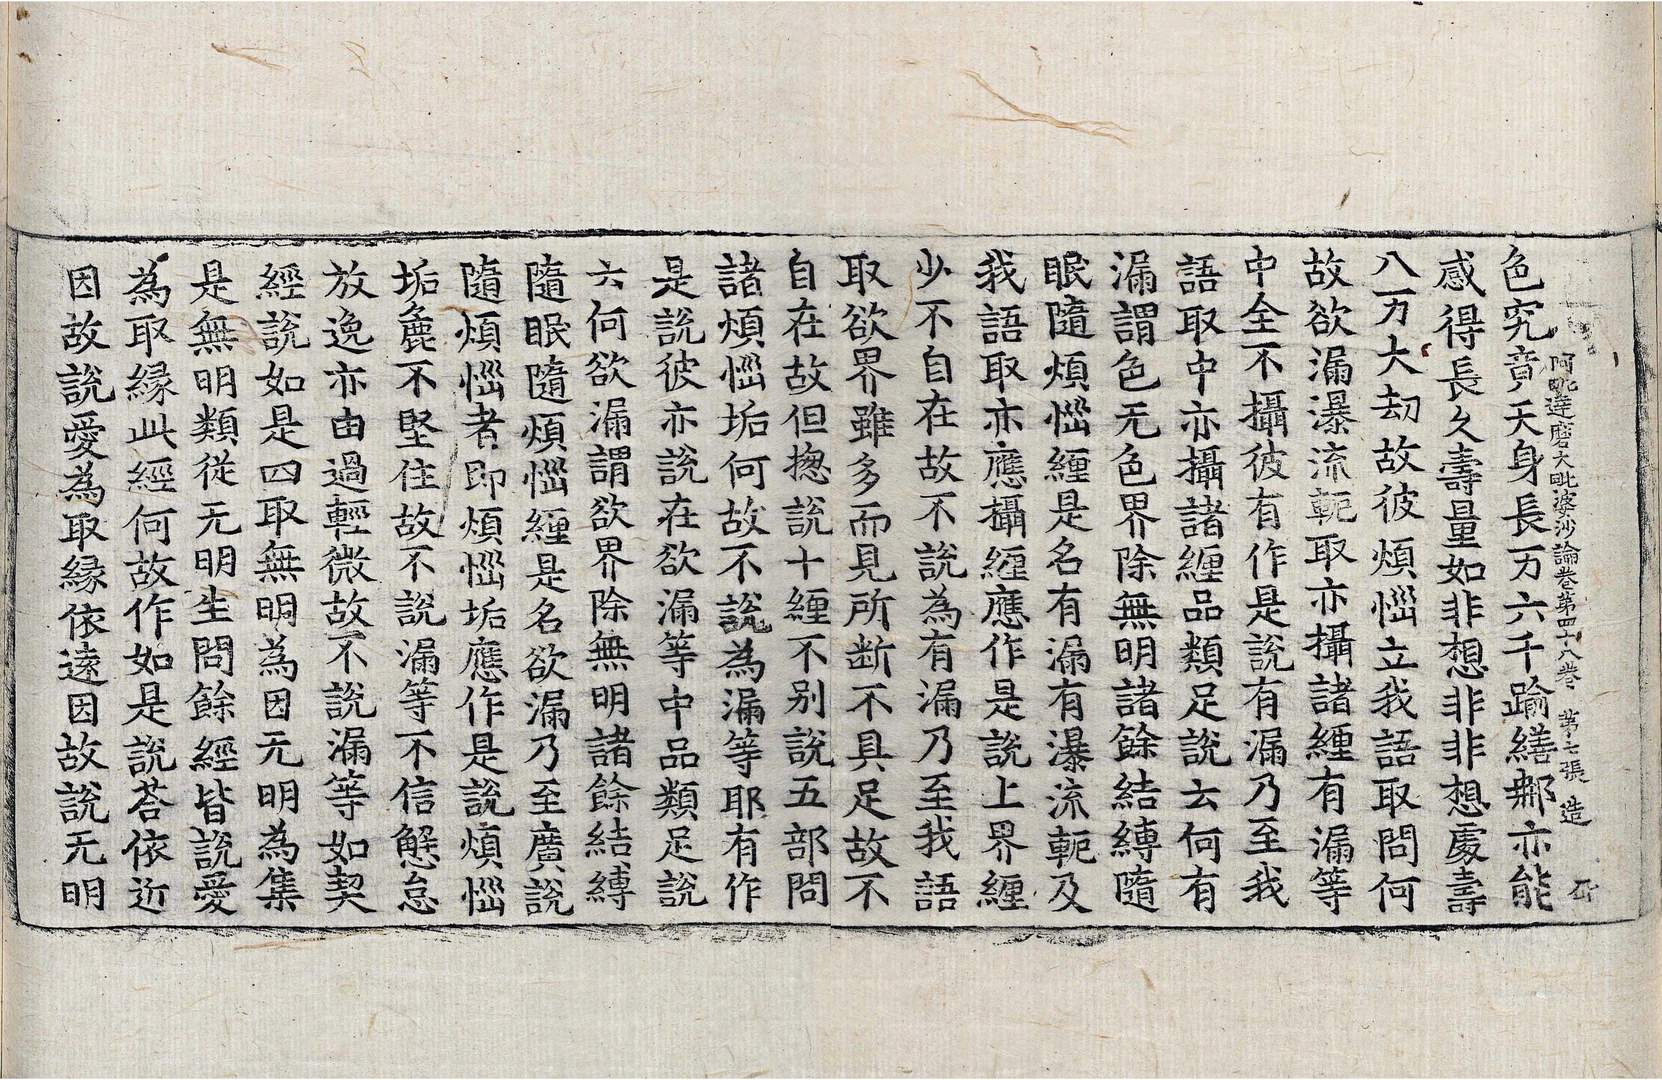 阿毗達磨大毗婆沙論卷第四十八卷 第七張 造
色究竟天身長万六千踰繕那亦能
感得長久壽量如非想非非想處壽
八万大劫故彼煩惱立我語取問何
故欲漏瀑流軛取亦攝諸纏有漏等
中全不攝彼有作是說有漏乃至我
語取中亦攝諸纏品類足說云何有
漏謂色无色界除無明諸餘結縛隨
眠隨煩惱纏是名有漏有瀑流軛及
我語取亦應攝纏應作是說上界纏
少不自在故不說為有漏乃至我語
取欲界雖多而見所斷不具足故不
自在故但揔說十纏不别說五部問
諸煩惱垢何故不說為漏等耶有作
是說彼亦說在欲漏等中品類足說
云何欲漏謂欲界除無明諸餘結縛
隨眠隨煩惱纏是名欲漏乃至廣說
隨煩惱者即煩惱垢應作是說煩惱
垢麁不堅住故不說漏等不信懈怠
放逸亦由過輕微故不說漏等如契
經說如是四取無明為因无明為集
是無明類從无明生問餘經皆說愛
為取緣此經何故作如是說荅依近
因故說愛為取緣依遠因故說无明